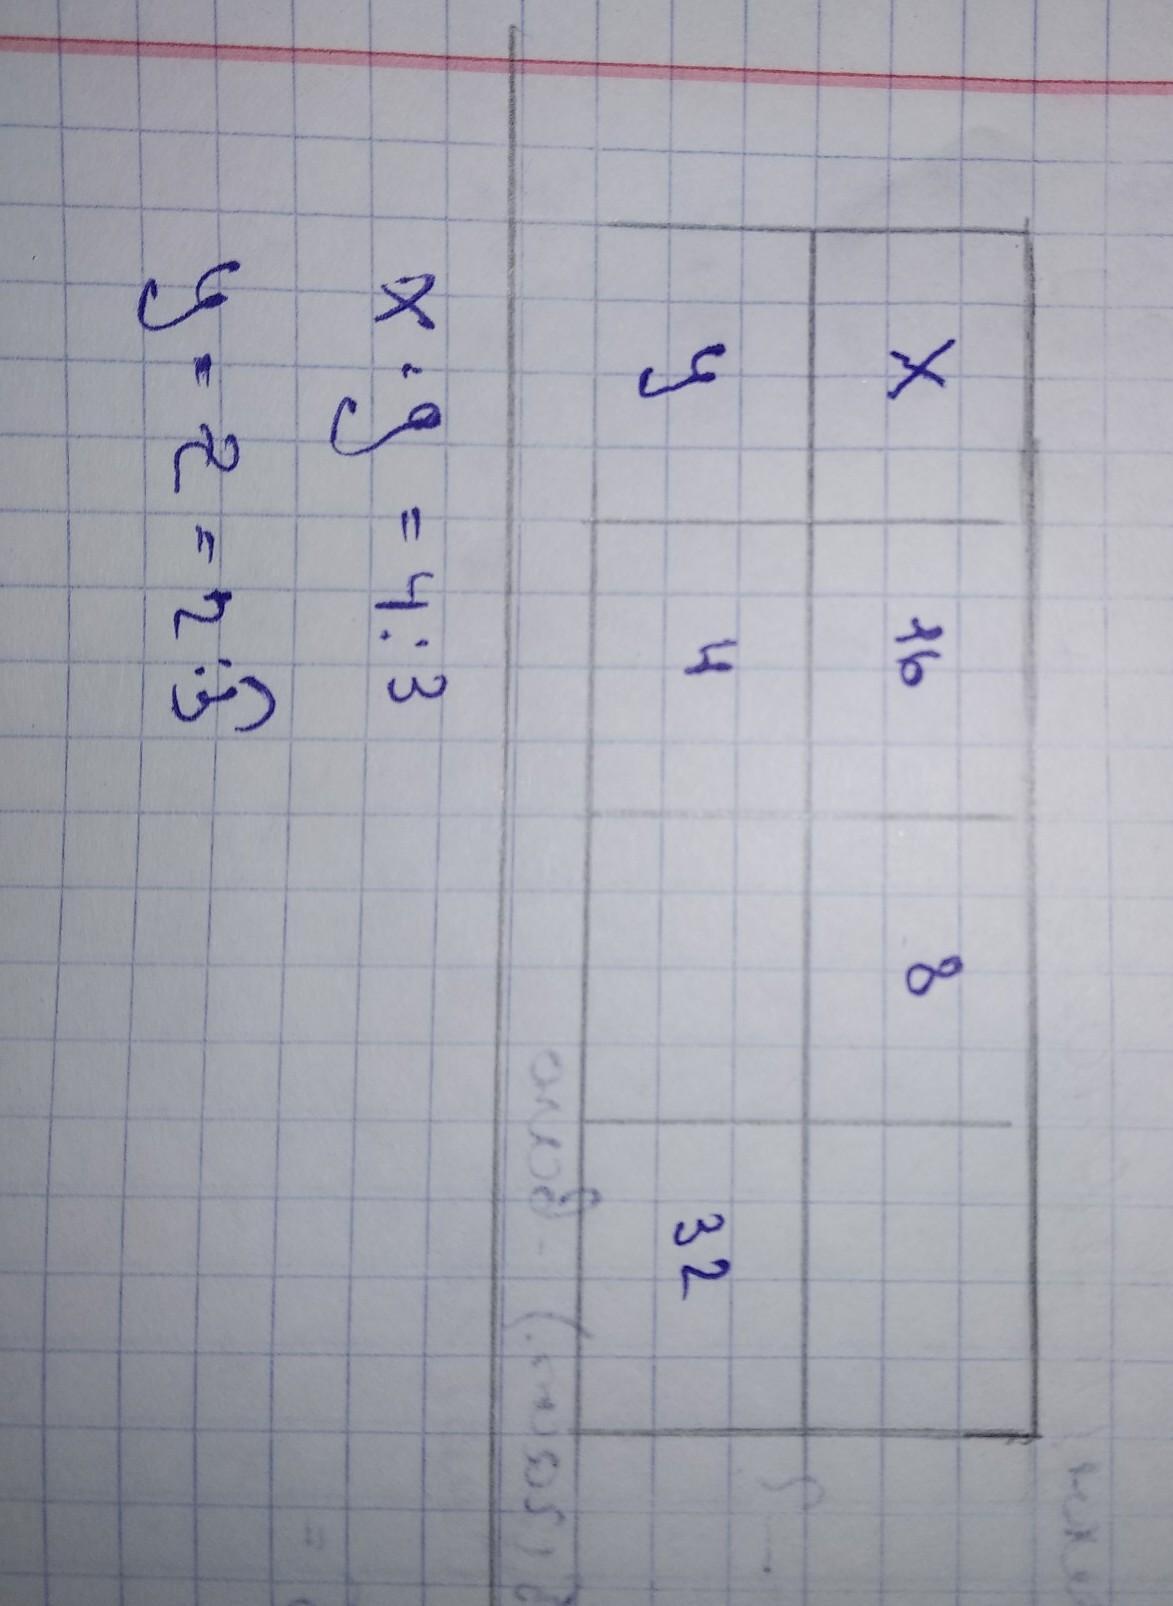 x 16 8
y 4 32
x . y = 4 : 3
y = z = 2 : 5